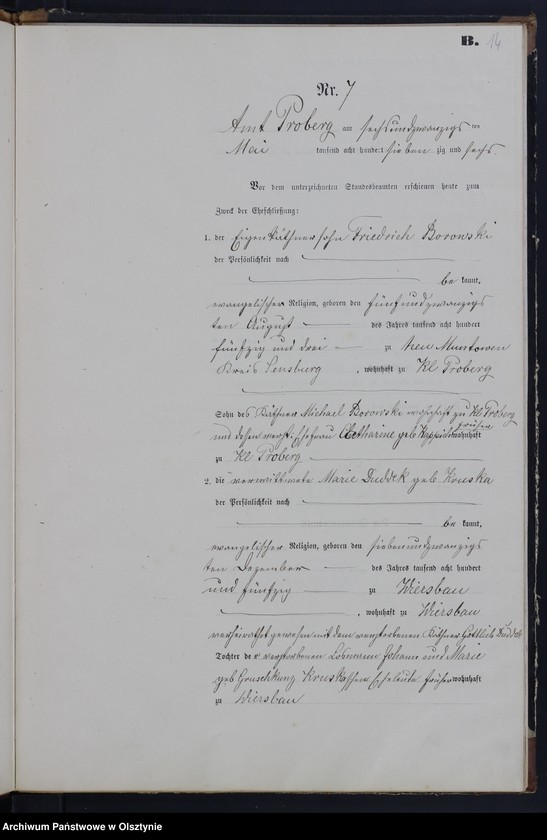 B. 14
Nr. 7
Amt Proberg am sechsundzwanzigsten
Mai tausend acht hundert sieben zig und sechs.
Vor dem unterzeichneten Standesbeamten erschienen heute zum
Zweck der Eheschließung:
1. der Eigenkäthnersohn Friedrich Borowski
der Persönlichkeit nach
be kannt,
evangelischer Religion, geboren den fünfundzwanzigs
ten August des Jahres tausend acht hundert
fünfzig und drei zu Neu Muntowen
Kreis Sensburg, wohnhaft zu Kl Proberg
Sohn des Käthner Michael Borowski wohnhaft zu Kl Proberg
und dessen verst. Ehefrau Catharine geb früher wohnhaft
zu Kl Proberg
2. die verwittwete Marie Duddek geb. Kruska
der Persönlichkeit nach
be kannt,
evangelischer Religion, geboren den siebenundzwanzigs
ten Dezember des Jahres tausend acht hundert
und fünfzig zu Wiersbau
, wohnhaft zu Wiersbau
verheirathet gewesen mit dem verstorbenen Käthner Gottlieb Duddek
Tochter der verstorbenen Losmann Johann und Marie
geb Kruskaschen Eheleute früher wohnhaft
zu Wiersbau
Archiwum Państwowe w Olsztynie